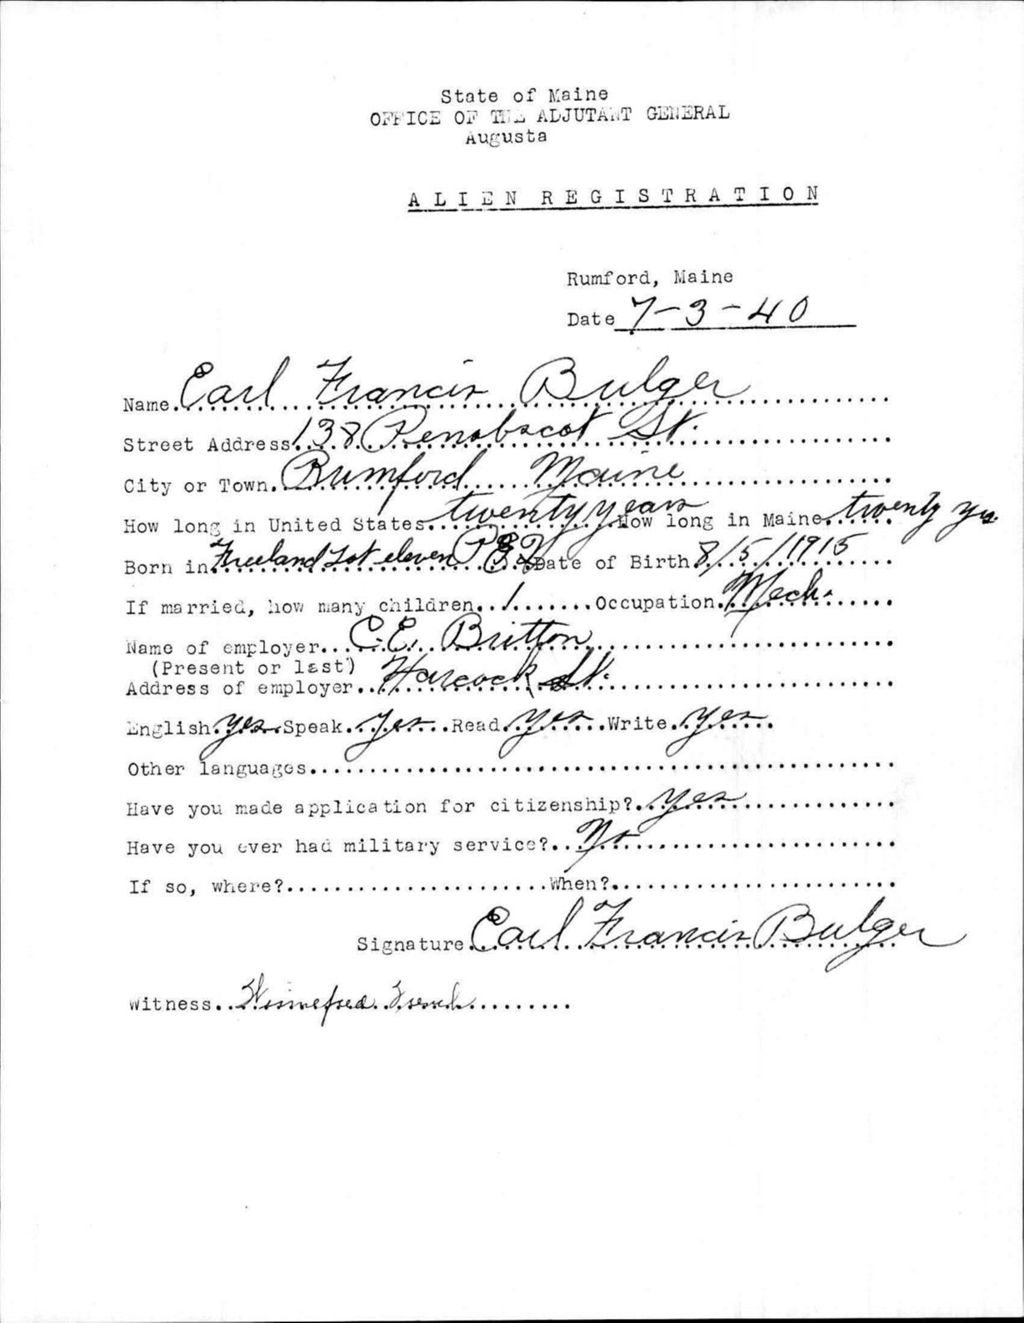 State of Maine
OFFICE OF THE ADJUTANT GENERAL
Augusta
ALIEN REGISTRATION
Rumford, Maine
Date 7-3-40
Name Earl Francis Bulger
Street Address 138 Penobscot St.
City or Town Rumford Maine
How long in United States twenty years How long in Maine twenty yrs
Born in Freeland Lot eleven P.E.I. Date of Birth 8/5/1915
If married, how many children 1 Occupation Mech.
Name of employer C.E. Britton
(Present or last)
Address of employer Hancock St.
English yes Speak yes Read yes Write yes
Other languages
Have you made application for citizenship? yes
Have you ever had military service? No
If so, where? When?
Signature Earl Francis Bulger
Witness Winnefred French